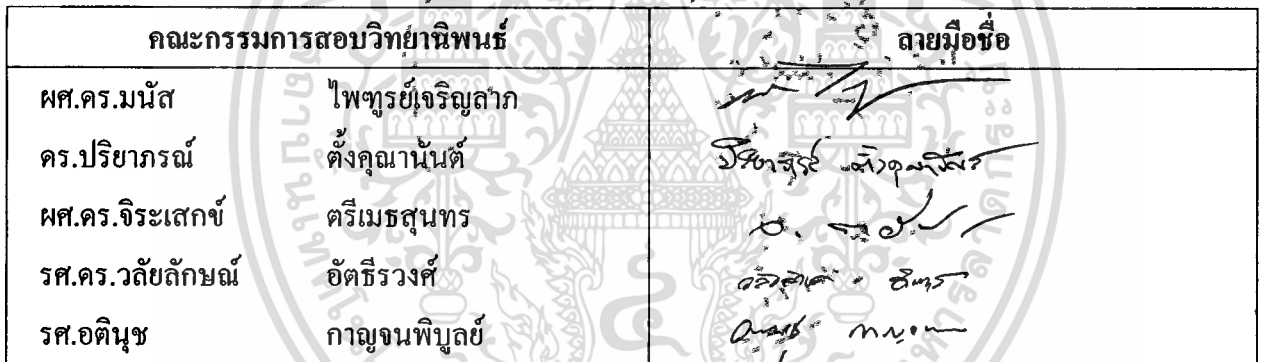 คณะกรรมการสอบวิทยานิพนธ์ ลายมือชื่อ
ผศ.ดร.มนัส ไพฑูรย์เจริญลาภ
ดร.ปริยาภรณ์ ตั้งคุณานันต์
ผศ.ดร.จิระเสกข์ ตรีเมธสุนทร
รศ.ดร.วลัยลักษณ์ อัตธีรวงศ์
รศ.อตินุช กาญจนพิบูลย์